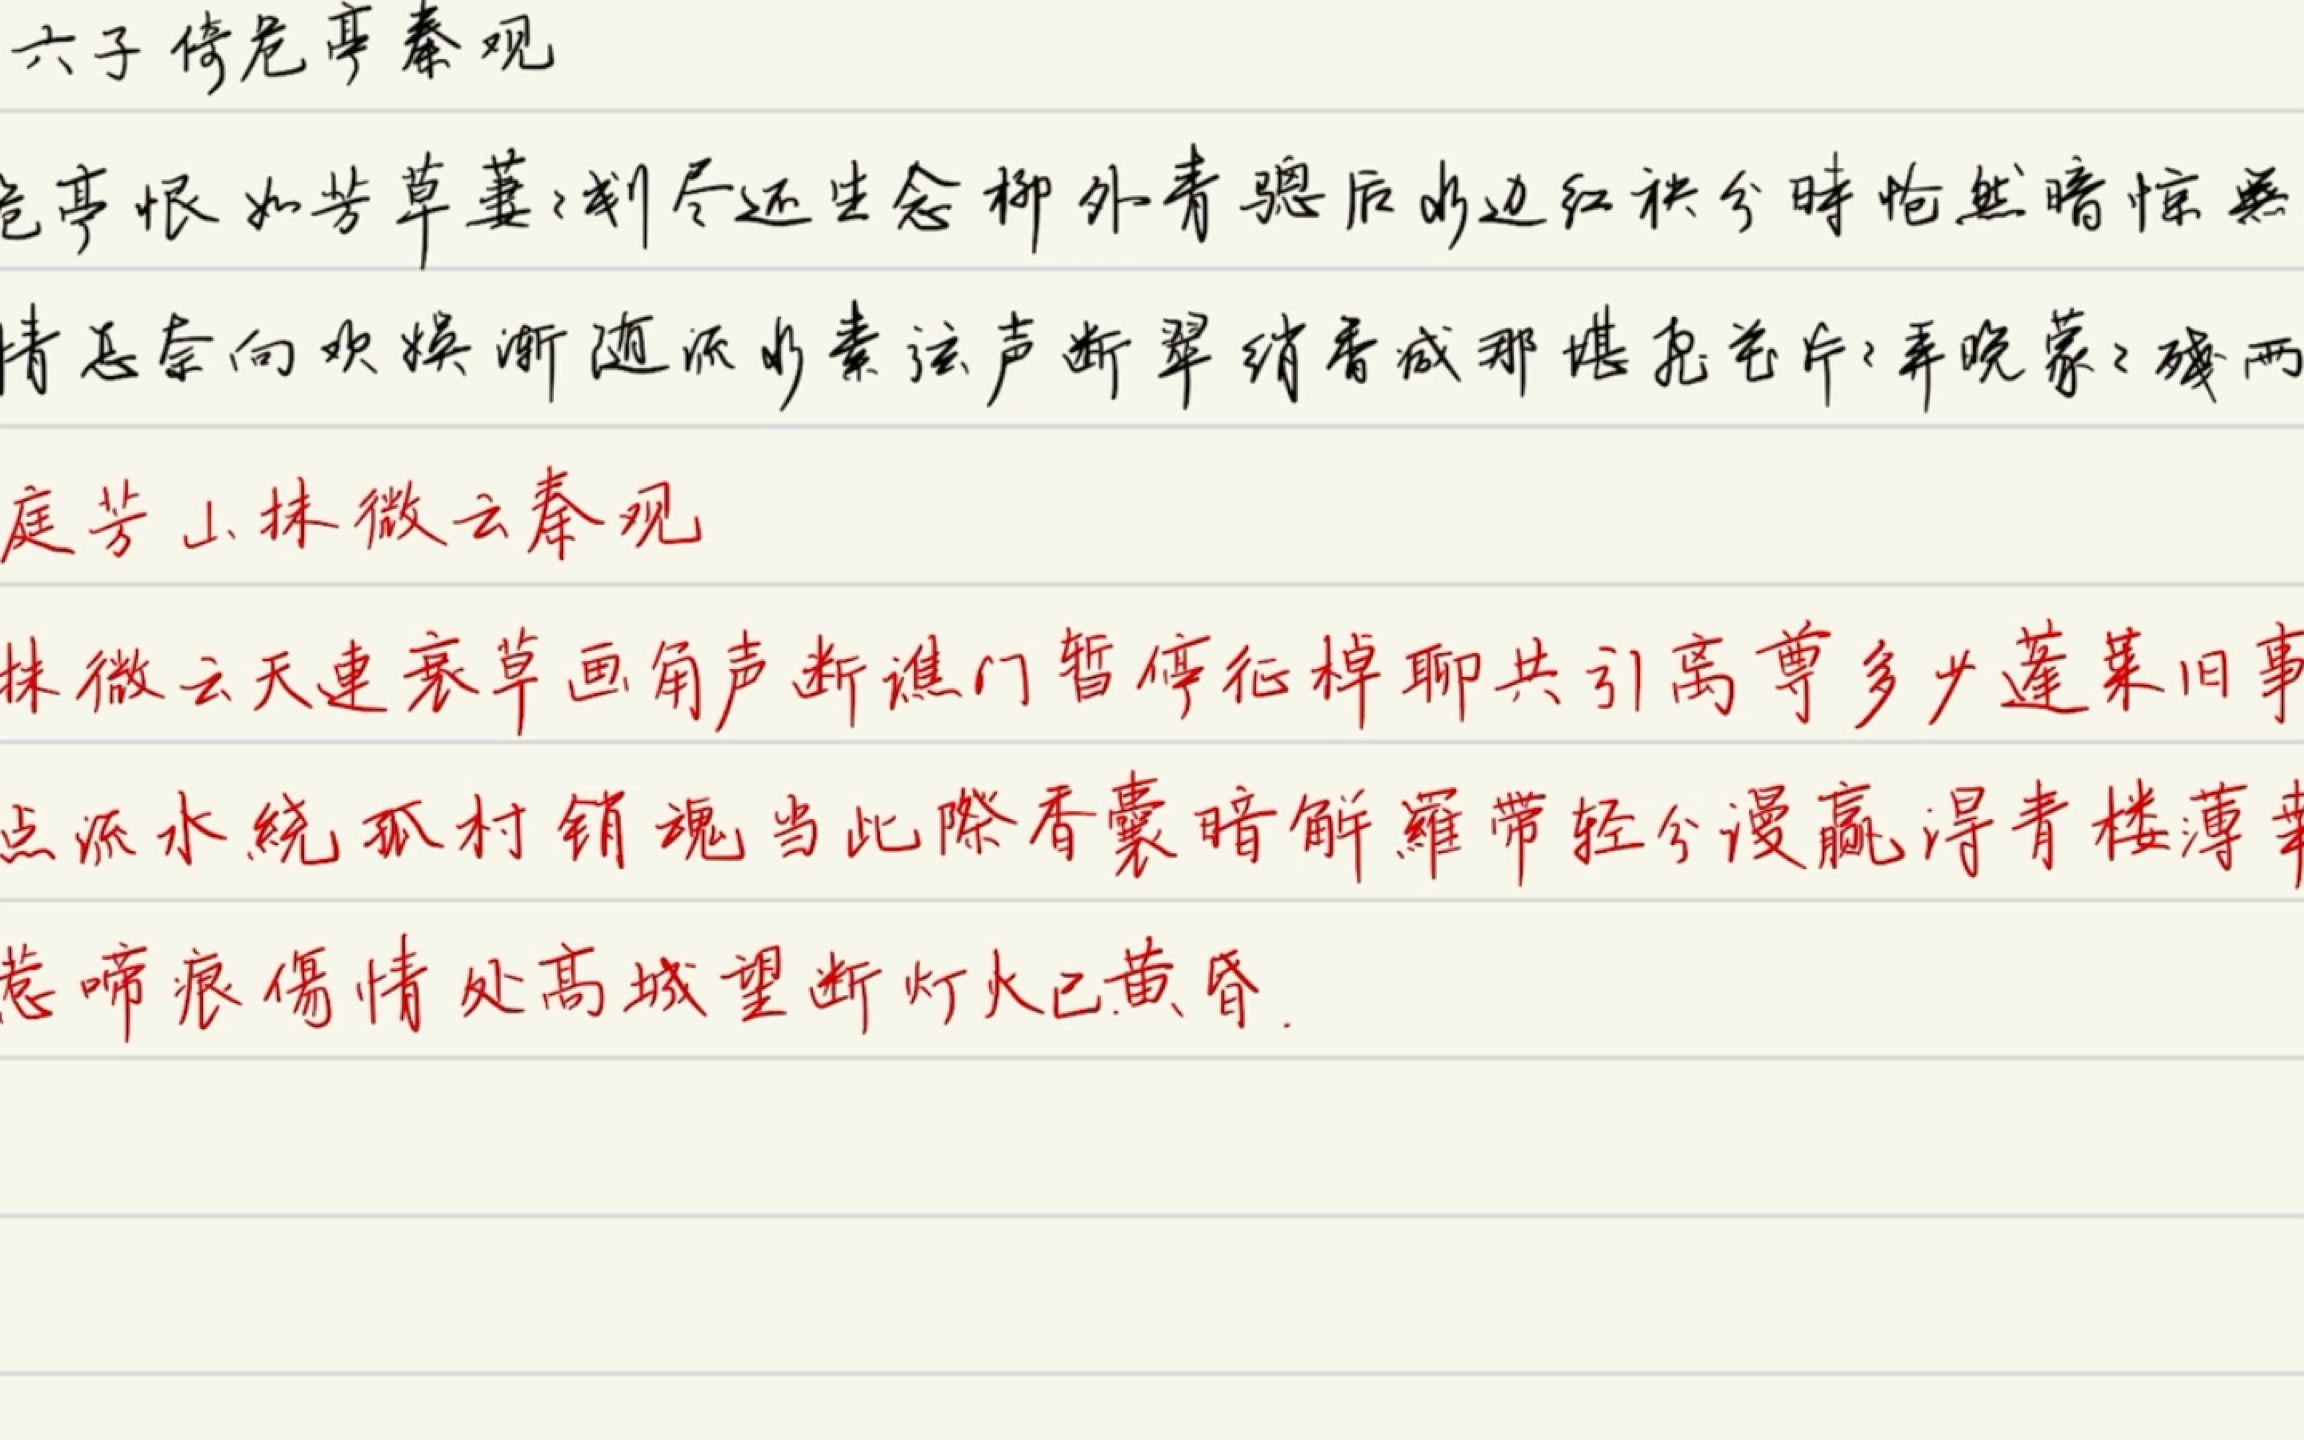 六子倚危亭秦观
危亭恨如芳草萋〻刬尽还生念柳外青骢后水边红袂分時怆然暗惊無
情怎奈向欢娱渐随流水素弦声断翠绡香减那堪飞花片〻弄晚蒙〻残雨
庭芳山抹微云秦观
抹微云天連衰草画角声断谯门暂停征棹聊共引离尊多少蓬莱旧事
点流水繞孤村销魂当此際香囊暗解羅带轻分谩赢得青楼薄幸
惹啼痕傷情处高城望断灯火已黄昏.